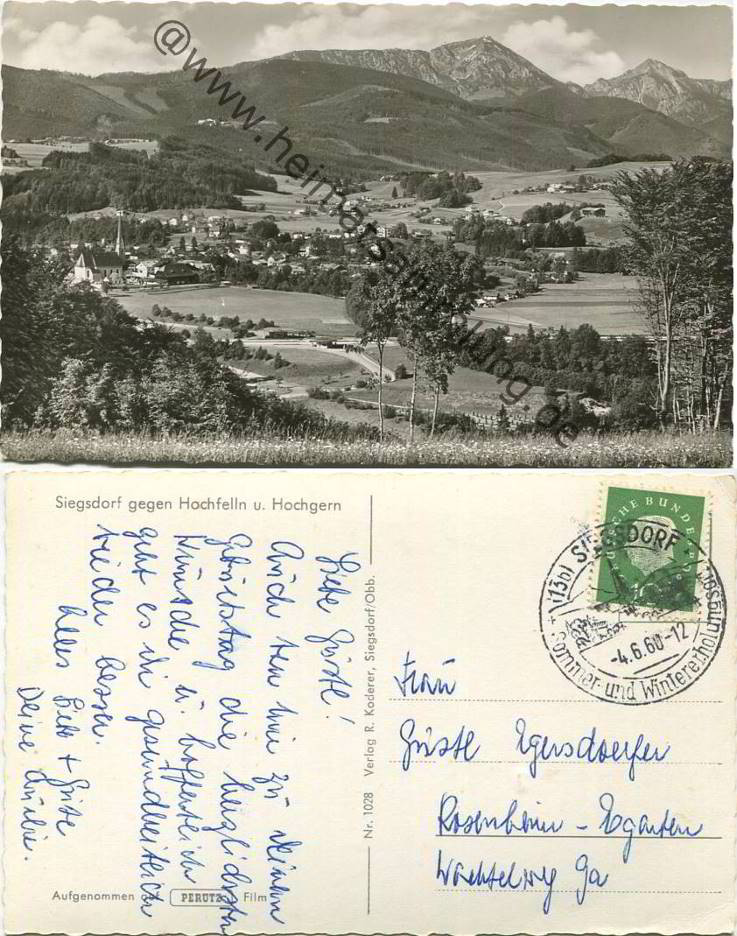 @www.heimatsammlung.de
Siegsdorf gegen Hochfelln u. Hochgern
Liebe Güstl!
Auch von hier zu Deinem
Geburtstag die herzlichsten
Wünsche u. hoffentlich
geht es ihr gesundheitlich
wieder besser.
Alles Liebe + Güte
Deine
Aufgenommen auf PERUTZ Film
Nr. 1028 Verlag R. Koderer, Siegsdorf/Obb.
DEUTSCHE BUNDESPOST
(13b) SIEGSDORF
-4.6.60-12
Sommer- und Wintererholungsort
Frau
Güstl Egersdoerfer
Rosenheim - Egarten
Wachtelweg 9a